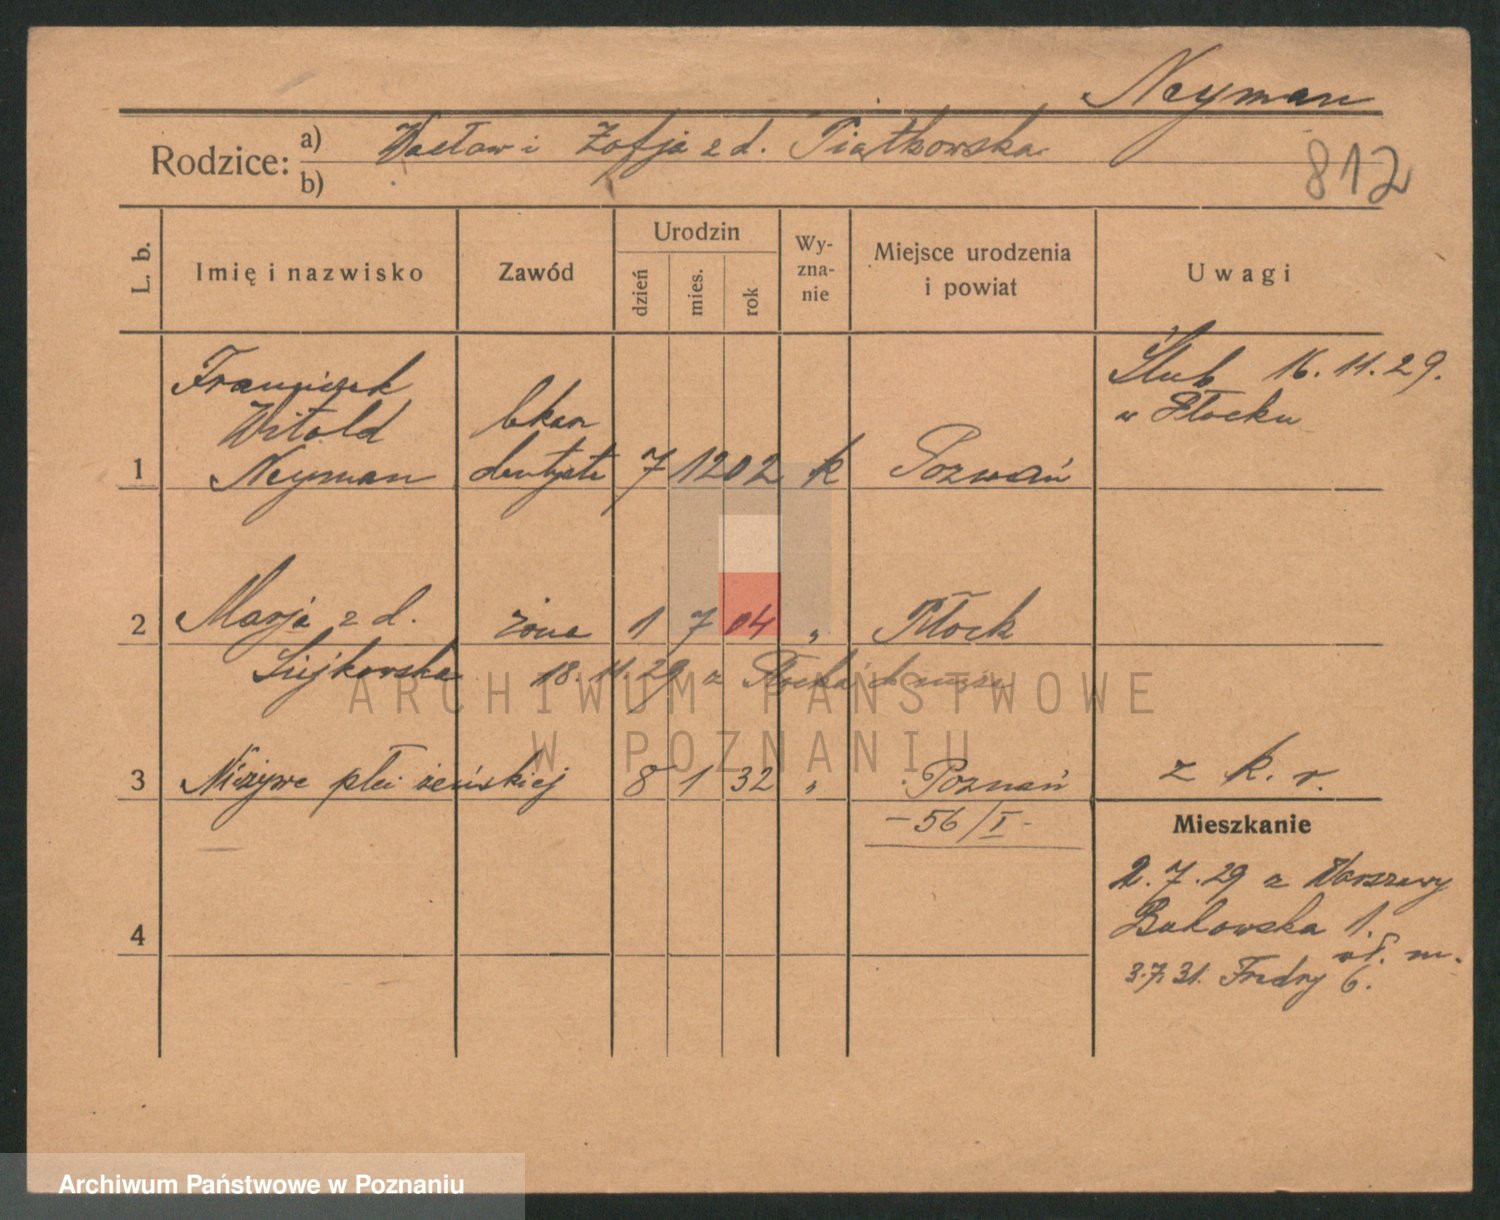 Neyman
Rodzice: a) Wacław i Zofja z d. Piątkowska
b)
812
L. b.
Imię i nazwisko
Zawód
Urodzin
dzień
mies.
rok
Wy-
zna-
nie
Miejsce urodzenia
i powiat
Uwagi
Franciszek
Witold
1 Neyman
lekarz
dentysta 7 12 02 k Poznań
Ślub 16.11.29.
w Płocku
2 Marja z d. żona 1 7 04 „ Płock
18.11.29 z Płocka do męża
3 Nieżywe płci żeńskiej 8 1 32 „ Poznań z k. r.
-56/I-
Mieszkanie
2.7.29 z Warszawy
4
Bukowska 1.
wł. m.
3.7.31. Fredry 6.
ARCHIWUM PAŃSTWOWE
W POZNANIU
Archiwum Państwowe w Poznaniu